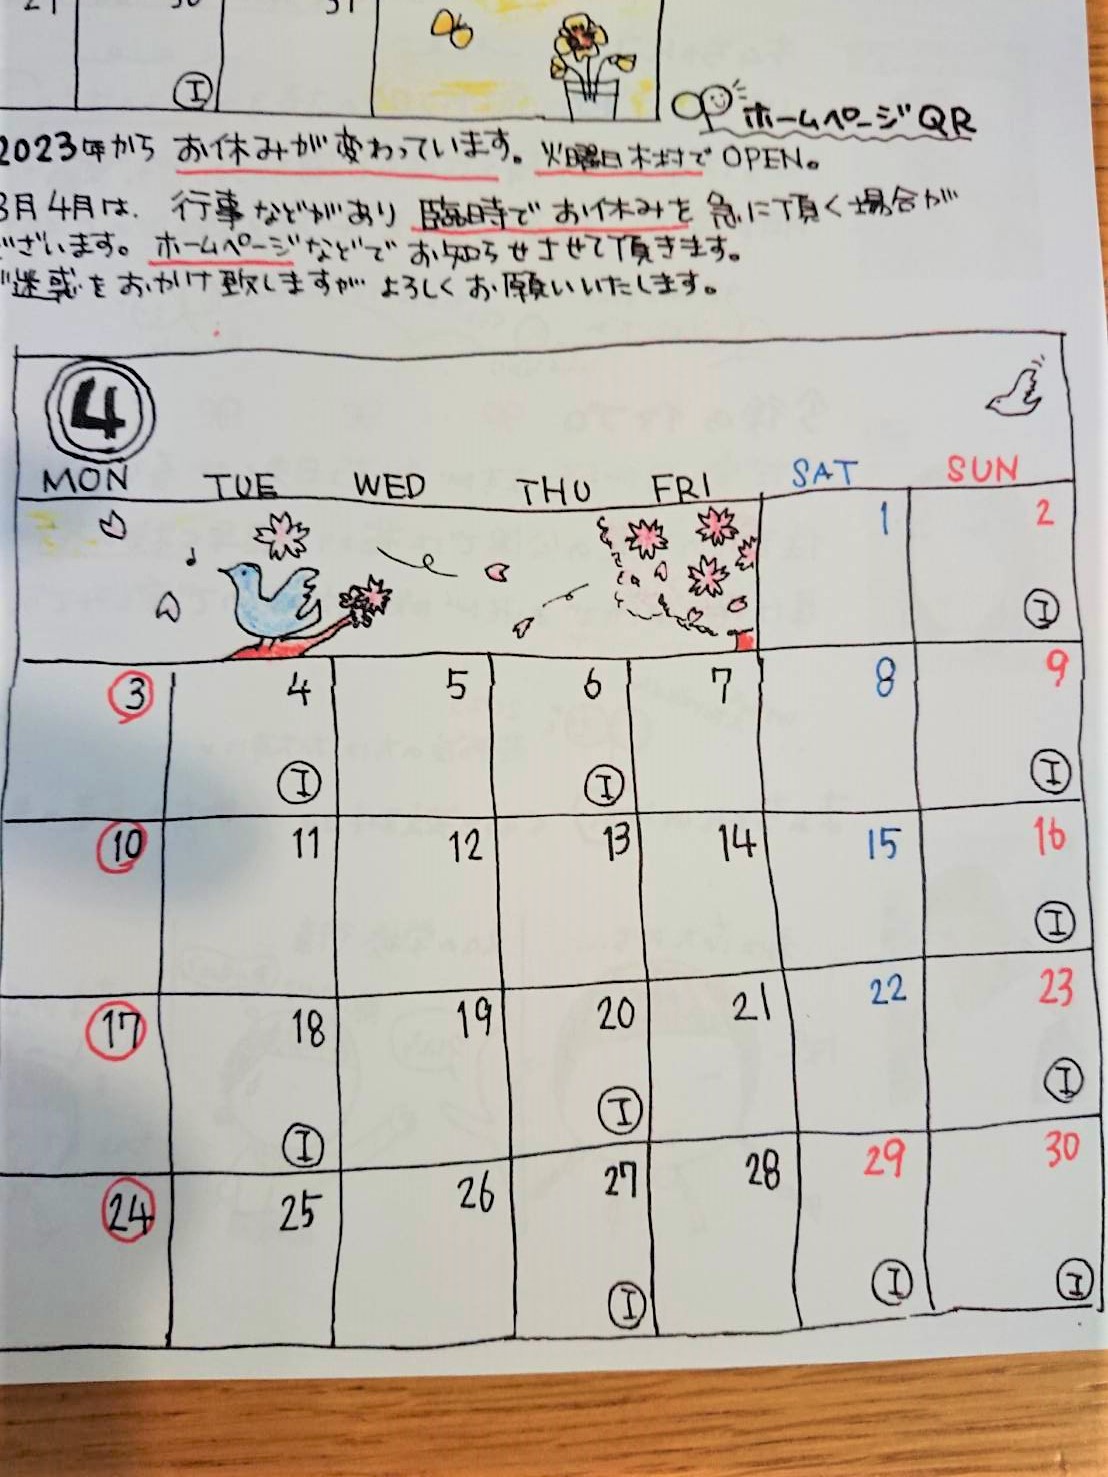 30
31
I
ホームページQR
2023年から お休みが変わっています。火曜日木村でOPEN。
3月4月は、行事などがあり臨時でお休みを急に頂く場合が
ざいます。ホームページなどでお知らせさせて頂きます。
迷惑をおかけ致しますがよろしくお願いいたします。
4
MON TUE WED THU FRI SAT SUN
1 2
I
3 4 5 6 7 8 9
I I I
10 11 12 13 14 15 16
I
17 18 19 20 21 22 23
I I I
24 25 26 27 28 29 30
I I I